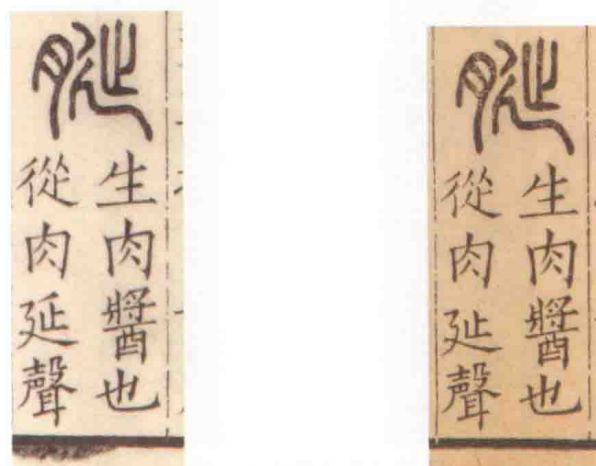 脠
生肉醬也
從肉延聲
脠
生肉醬也
從肉㢟聲